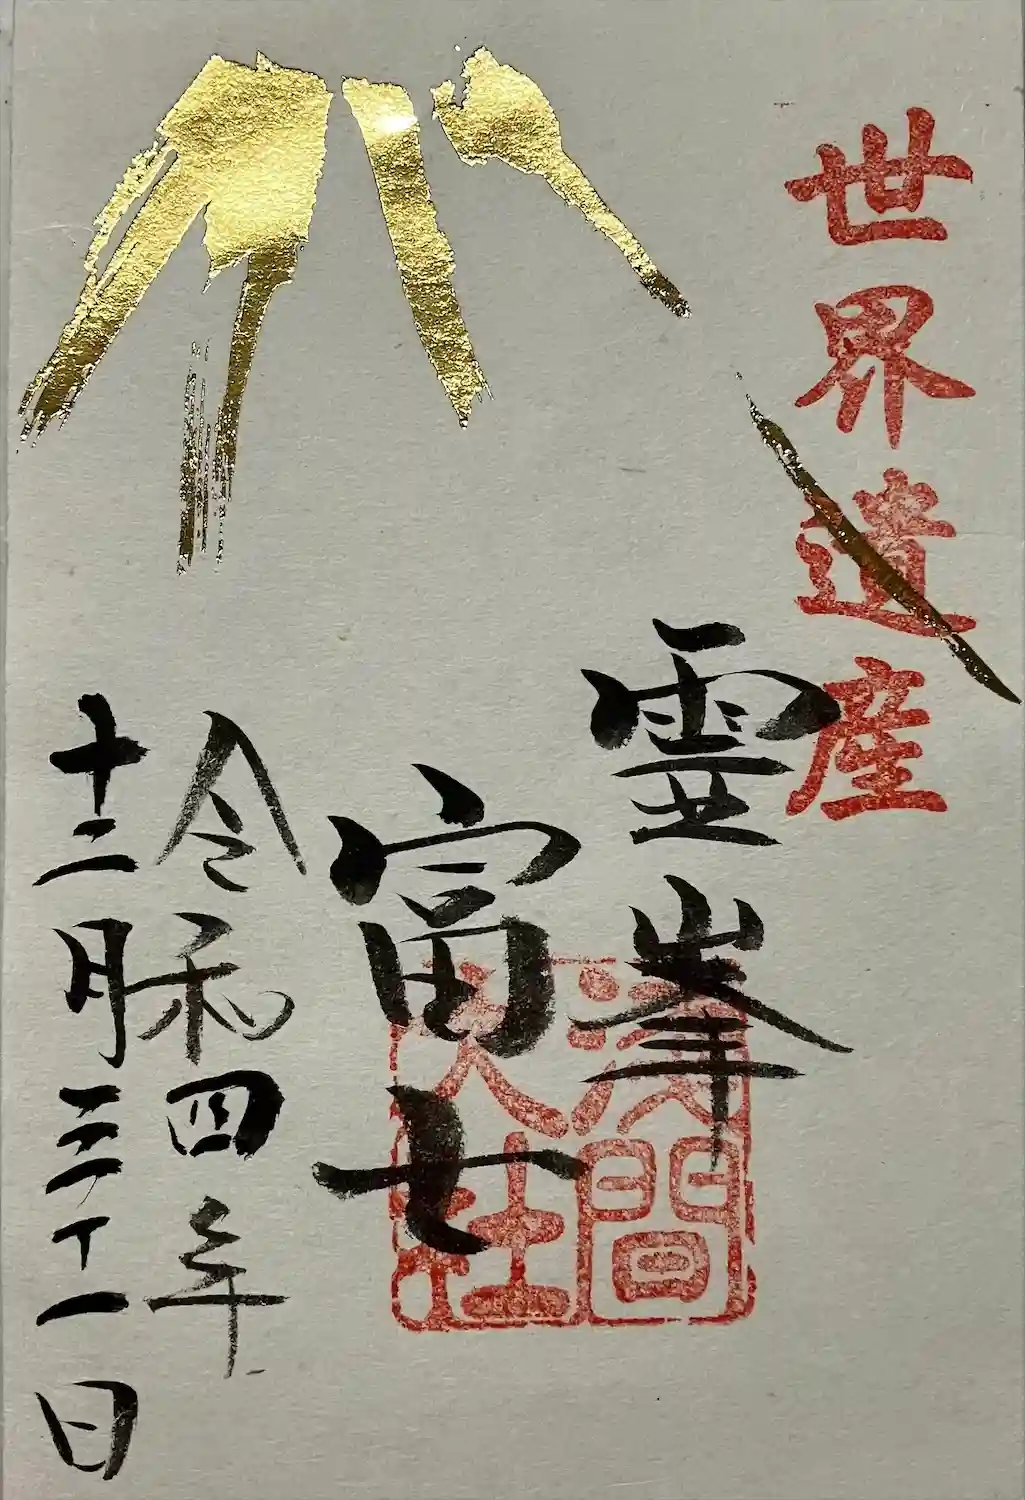 世界遺産
霊峯
富士
淺間
大社
令和四年
十二月三十一日